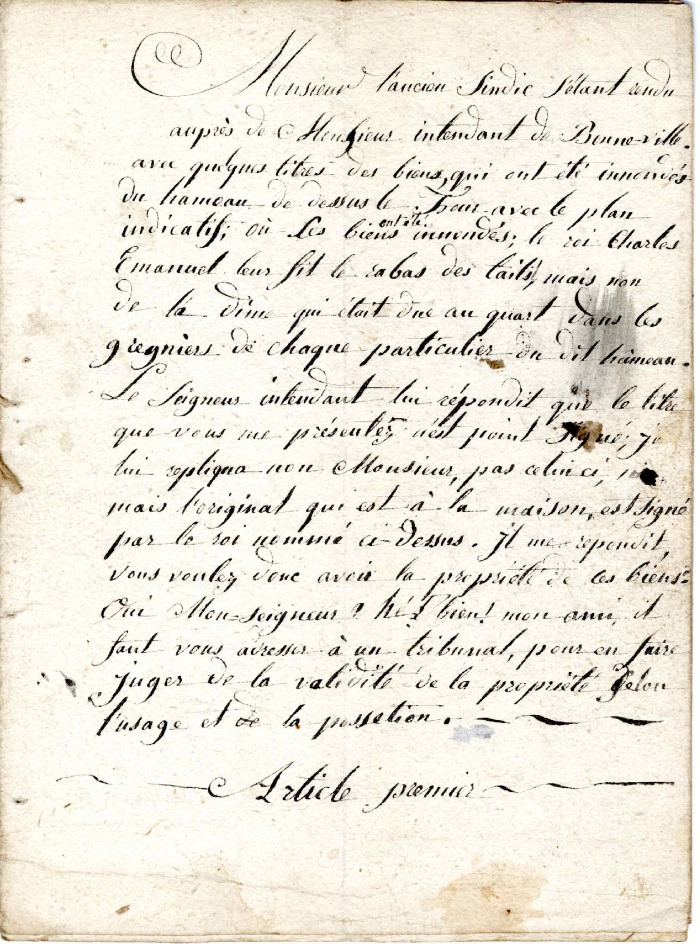 Monsieur l'ancien Sindic s'étant rendu
auprès de Monsieur intendant de Bonne-ville.
avec quelques titres des biens, qui ont été innondés
du hameau de dessus le Four avec le plan
indicatif; où les biens ont été innundés; le roi Charles
Emanuel leur fit le rabas des tails, mais non
de la dîme qui était due au quart dans les
gregniers de chaque particulier du dit hameau.
Le Seigneur intendant lui répondit que le titre
que vous me présentez n'est point signé; je
lui repliqua non Monsieur, pas celui ci,
mais l'original qui est à la maison, est signé
par le roi nommé ci-dessus. Il me repondit,
vous voulez donc avoir la propriété de ces biens?
Oui Mon-seigneur? hé! bien! mon ami, il
faut vous adresser à un tribunal, pour en faire
juger de la validité de la propriété selon
l'usage et de la possetion.
Article premier